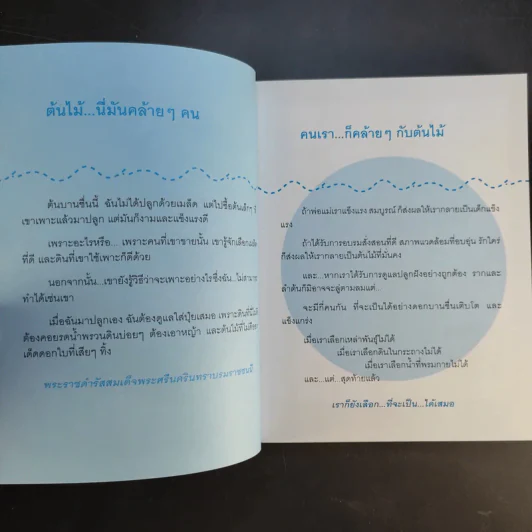 ต้นไม้...นี่มันคล้ายๆ คน
ต้นบานชื่นนี้ ฉันไม่ได้ปลูกด้วยเมล็ด แต่ไปซื้อต้นเล็กๆ ที่
เขาเพาะแล้วมาปลูก แต่มันก็งามและแข็งแรงดี
เพราะอะไรหรือ... เพราะคนที่เขาขายนั้น เขารู้จักเลือกเมล็ด
ที่ดี และดินที่เขาใช้เพาะก็ดีด้วย
นอกจากนั้น...เขายังรู้วิธีว่าจะเพาะอย่างไรซึ่งฉัน..ไม่สามารถ
ทำได้เช่นเขา
เมื่อฉันมาปลูกเอง ฉันต้องดูแลใส่ปุ๋ยเสมอ เพราะดินที่นี่ไม่ดี
ต้องคอยรดน้ำพรวนดินบ่อยๆ ต้องเอาหญ้า และต้นไม้ที่ไม่ดีออก
เด็ดดอกใบที่เสียๆ ทิ้ง
พระราชดำรัสสมเด็จพระศรีนครินทราบรมราชชนนี
คนเรา...ก็คล้ายๆ กับต้นไม้
ถ้าพ่อแม่เราแข็งแรง สมบูรณ์ ก็ส่งผลให้เรากลายเป็นเด็กแข็ง
แรง
ถ้าได้รับการอบรมสั่งสอนที่ดี สภาพแวดล้อมที่อบอุ่น รักใคร่
ก็ส่งผลให้เรากลายเป็นต้นไม้ที่มั่นคง
และ...หากเราได้รับการดูแลปลูกฝังอย่างถูกต้อง รากและ
ลำต้นก็มิอาจจะลู่ตามลมแต่...
จะมีกี่คนกัน ที่จะเป็นได้อย่างดอกบานชื่นเติบโต และ
แข็งแกร่ง
เมื่อเราเลือกเหล่าพันธุ์ไม่ได้
เมื่อเราเลือกดินในกระถางไม่ได้
เมื่อเราเลือกน้ำที่พรมกายไม่ได้
และ...แต่...สุดท้ายแล้ว
เราก็ยังเลือก...ที่จะเป็น...ได้เสมอ